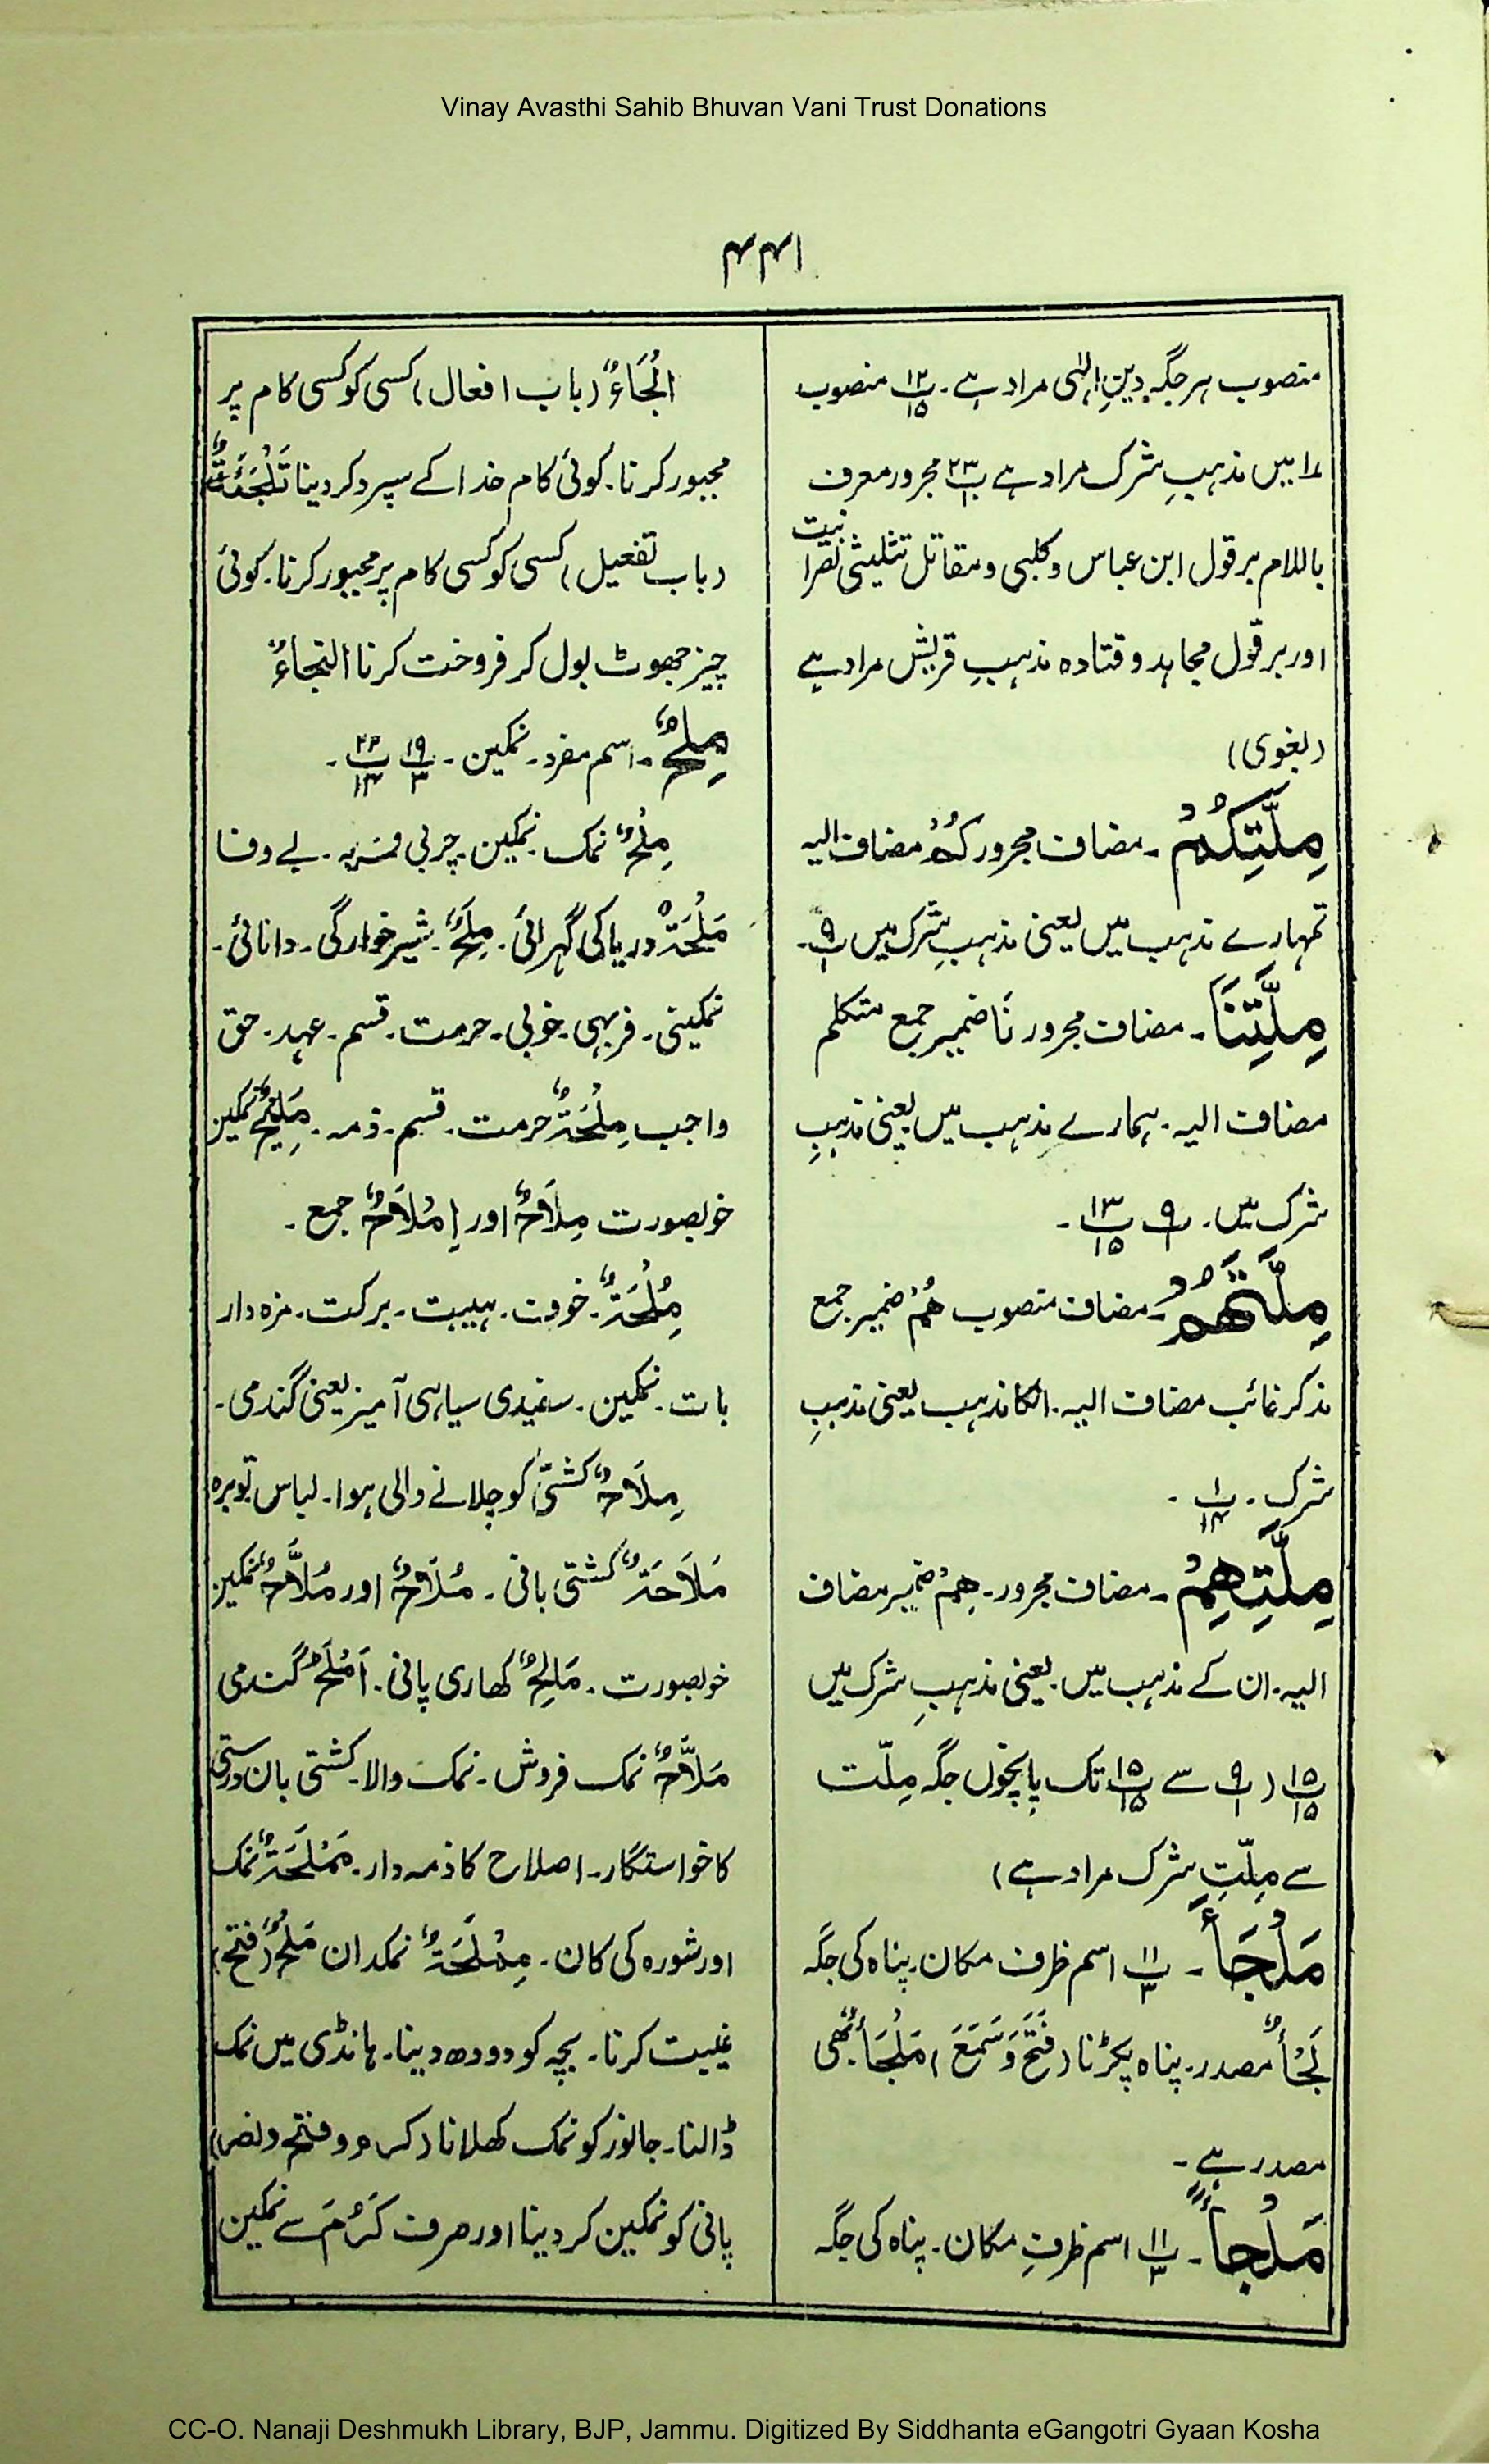 Vinay Avasthi Sahib Bhuvan Vani Trust Donations
۴۴۱
منصوب ہر جگہ دینِ الٰہی مراد ہے۔ پ۱۲/۱۵ منصوب
۱۴ میں مذہبِ شرک مراد ہے پ۲۳/۱ مجرور معرف
باللام بر قول ابن عباس و کلبی و مقاتل تثلیثی نصرانیت
اور بر قول مجاہد و قتادہ مذہبِ قریش مراد ہے
(بغوی)
مِلَّتِکُمْ۔ مضاف مجرور کُمْ مضاف الیہ
تمہارے مذہب میں یعنی مذہبِ شرک میں پ۹/۱۔
مِلَّتِنَا۔ مضاف مجرور نَا ضمیر جمع متکلم
مضاف الیہ۔ ہمارے مذہب میں یعنی مذہبِ
شرک میں۔ پ۹/۱ پ۱۳/۱۵۔
مِلَّتَهُمْ۔ مضاف منصوب هُمْ ضمیر جمع
مذکر غائب مضاف الیہ۔ انکا مذہب یعنی مذہبِ
شرک۔ پ۱/۱۴۔
مِلَّتِهِمْ۔ مضاف مجرور۔ هِمْ ضمیر مضاف
الیہ۔ ان کے مذہب میں۔ یعنی مذہبِ شرک میں
پ۱۵/۱۵ (پ۹/۱ سے پ۱۵/۱۵ تک پانچوں جگہ مِلّت
سے مِلّتِ شرک مراد ہے)
مَلْجَأَ۔ پ۱۱/۳ اسم ظرف مکان۔ پناہ کی جگہ
لَجْأٌ مصدر۔ پناہ پکڑنا (فَتَحَ وَ سَمِعَ) مَلْجَأٌ بھی
مصدر ہے۔
مَلْجَأً۔ پ۱۱/۳ اسم ظرفِ مکان۔ پناہ کی جگہ
اِلْجَاءٌ (باب افعال) کسی کو کسی کام پر
مجبور کرنا۔ کوئی کام خدا کے سپرد کر دینا تَلْجِئَةٌ
(باب تفعیل) کسی کو کسی کام پر مجبور کرنا۔ کوئی
چیز جھوٹ بول کر فروخت کرنا التجاءٌ
مِلْحٌ۔ اسم مفرد۔ نمکین۔ پ۱۹/۳ پ۲۲/۱۴۔
مِلْحٌ نمک۔ نمکین۔ چربی فربہ۔ بے وفا
مَلْحَةٌ دریا کی گہرائی۔ مِلْحٌ۔ شیر خوارگی۔ دانائی۔
نمکینی۔ فربہی۔ خوبی۔ حرمت۔ قسم۔ عہد۔ حق
واجب مِلْحَةٌ حرمت۔ قسم۔ ذمہ۔ مَلِیْحٌ نمکین
خوبصورت مِلَاحٌ اور اِمْلَاحٌ جمع۔
مُلْحَةٌ۔ خوف۔ ہیبت۔ برکت۔ مزہ دار
بات۔ نمکین۔ سفیدی سیاہی آمیز یعنی گندمی۔
مِلَاحٌ کشتی کو چلانے والی ہوا۔ لباس توبرہ
مَلَاحَةٌ کشتی بانی۔ مُلَاحٌ اور مُلَّاحٌ نمکین
خوبصورت۔ مَالِحٌ کھاری پانی۔ اَمْلَحُ گندمی
مَلَّاحٌ نمک فروش۔ نمک والا۔ کشتی بان درستی
کا خواستگار۔ اصلاح کا ذمہ دار۔ مَمْلَحَةٌ نمک
اور شورہ کی کان۔ مِمْلَحَةٌ نمکدان مَلْحٌ (فتح)
غیبت کرنا۔ بچہ کو دودھ دینا۔ ہانڈی میں نمک
ڈالنا۔ جانور کو نمک کھلانا (کرم و فتح و نصر)
پانی کو نمکین کر دینا اور صرف کَرُمَ سے نمکین
CC-O. Nanaji Deshmukh Library, BJP, Jammu. Digitized By Siddhanta eGangotri Gyaan Kosha